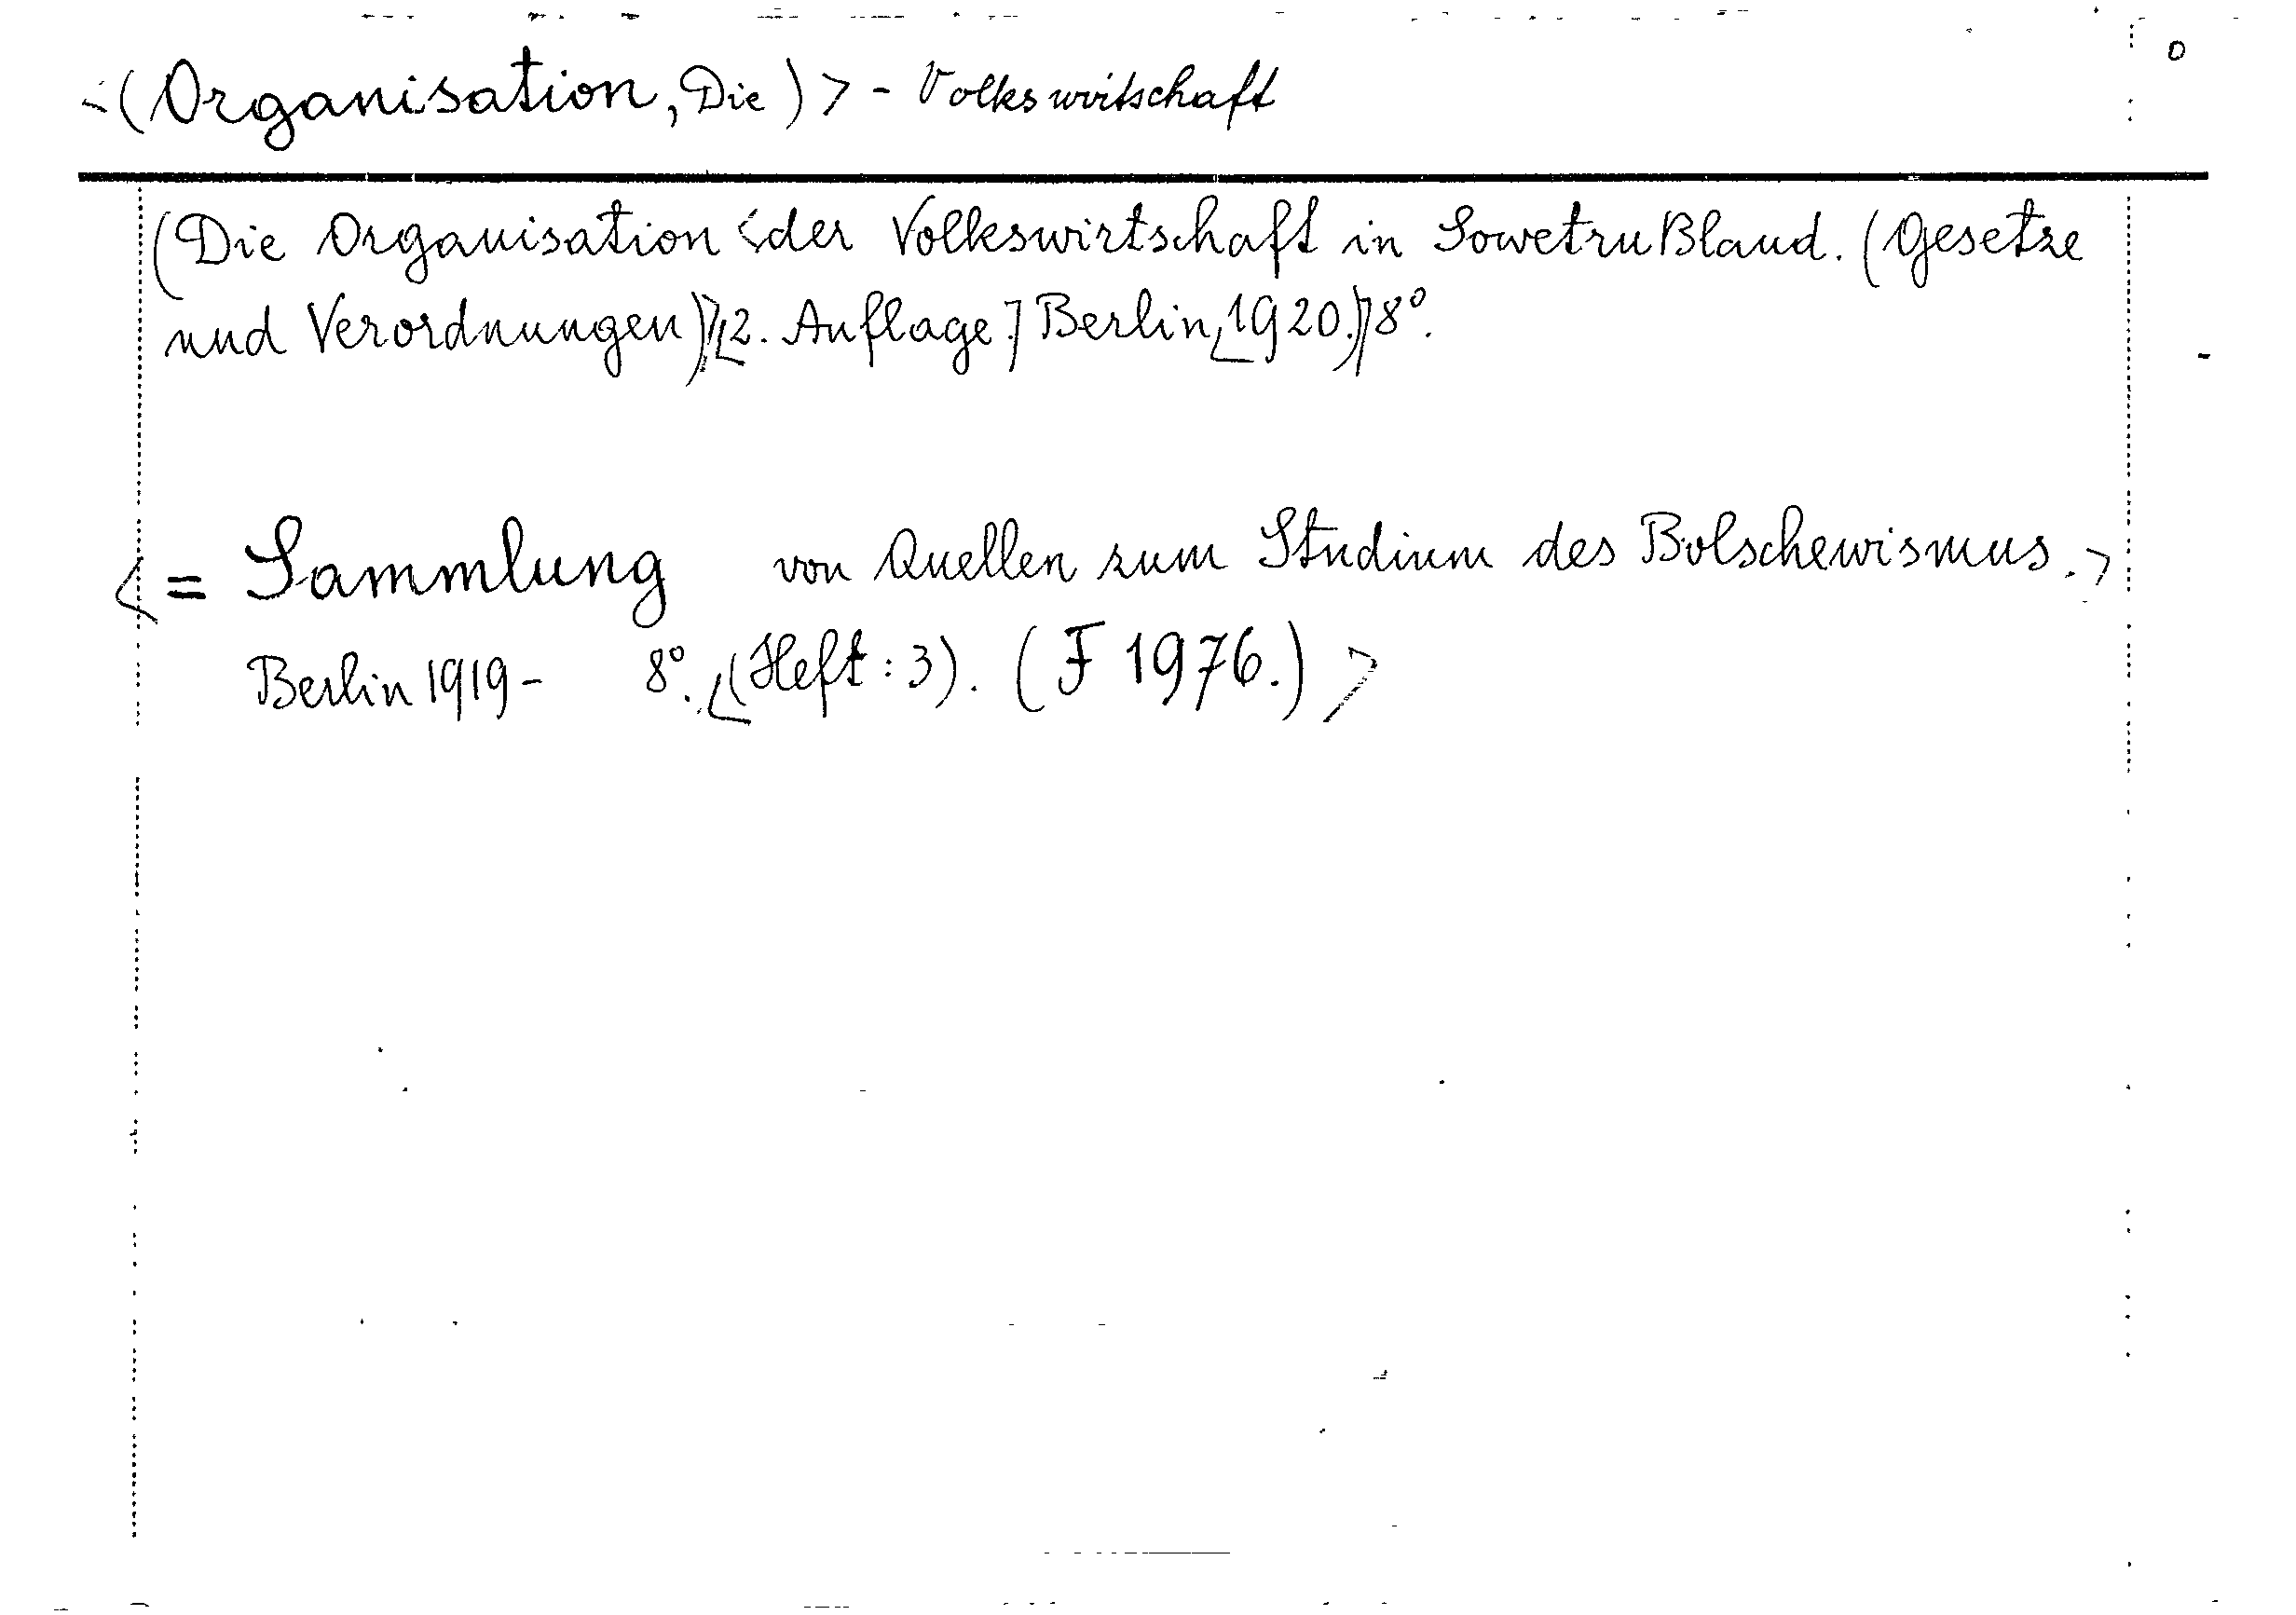 <(Organisation, Die)> - Volkswirtschaft
(Die Organisation <der Volkswirtschaft in Sowetrußland. (Gesetze
und Verordnungen)>[2. Auflage.] Berlin, 1920.)> 8°.
<= Sammlung von Quellen zum Studium des Bolschewismus.>
Berlin 1919- 8°. <(Heft: 3). (F 1976.)>